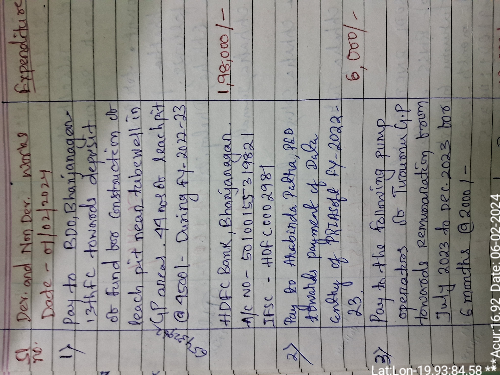 Sl no. Dev. and Non Dev. works Expenditure
Date - 01/02/2024
1) Pay to BDO, Bhanjanagar
13thFC towards deposit
of fund for construction of
leach pit near tubewell in
GP areas - 44 no of leach pit
@ 4500/- During FY-2022-23
HDFC Bank, Bhanjanagar. 1,98,000/-
A/C NO - 50100155319821
IFSC - HDFC0002981
2) Pay to Akabinda Patha, DEO
towards payment of Data
entry of PRIASoft FY-2022-
23 6,000/-
3) Pay to the following pump
operators of G.P
towards remuneration from
July 2023 to Dec 2023 for
6 months @ 2000/-
Lat:Lon-19.93:84.58 ** Acur:16.92 Date: 06-02-2024